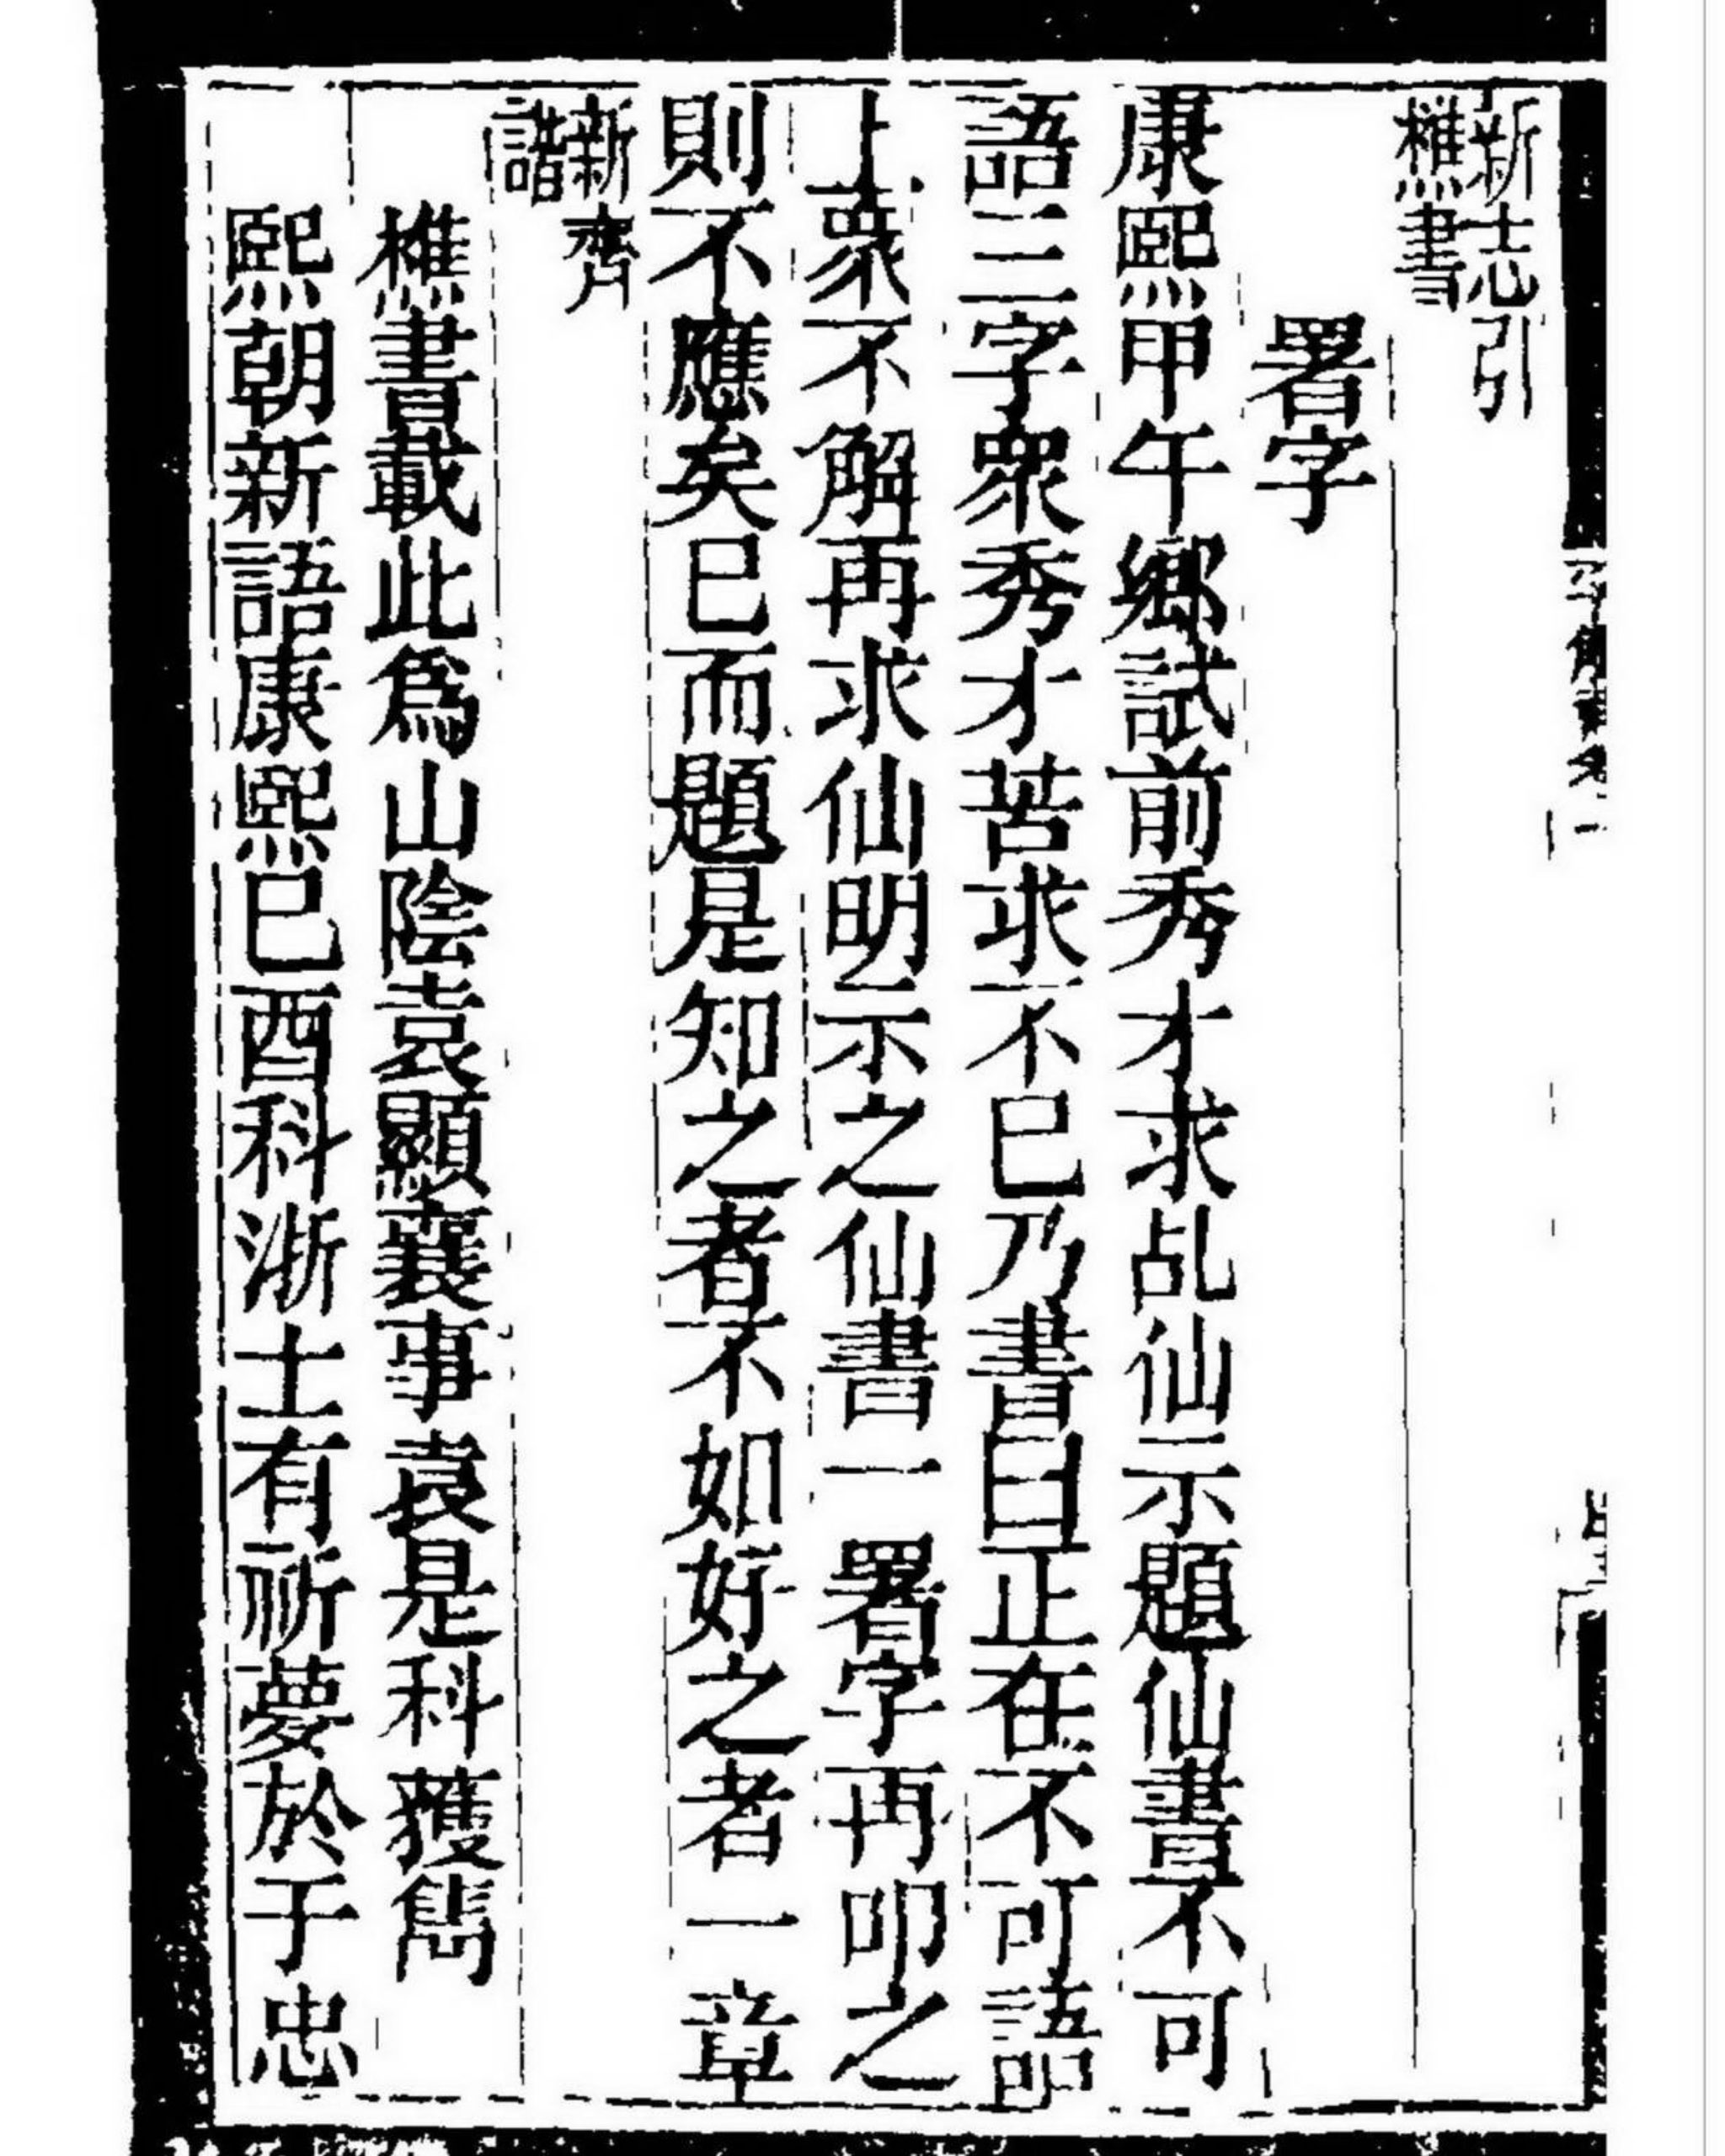 新志引
樵書
署字
康熙甲午鄉試前秀才求乩仙示題仙書不可
語三字衆秀才苦求不已乃書曰正在不可語
上衆不解再求仙明示之仙書一署字再叩之
則不應矣已而題是知之者不如好之者一章
新齊
諧
樵書載此爲山陰袁顯襄事袁是科獲雋
熙朝新語康熙己酉科浙士有祈夢於于忠